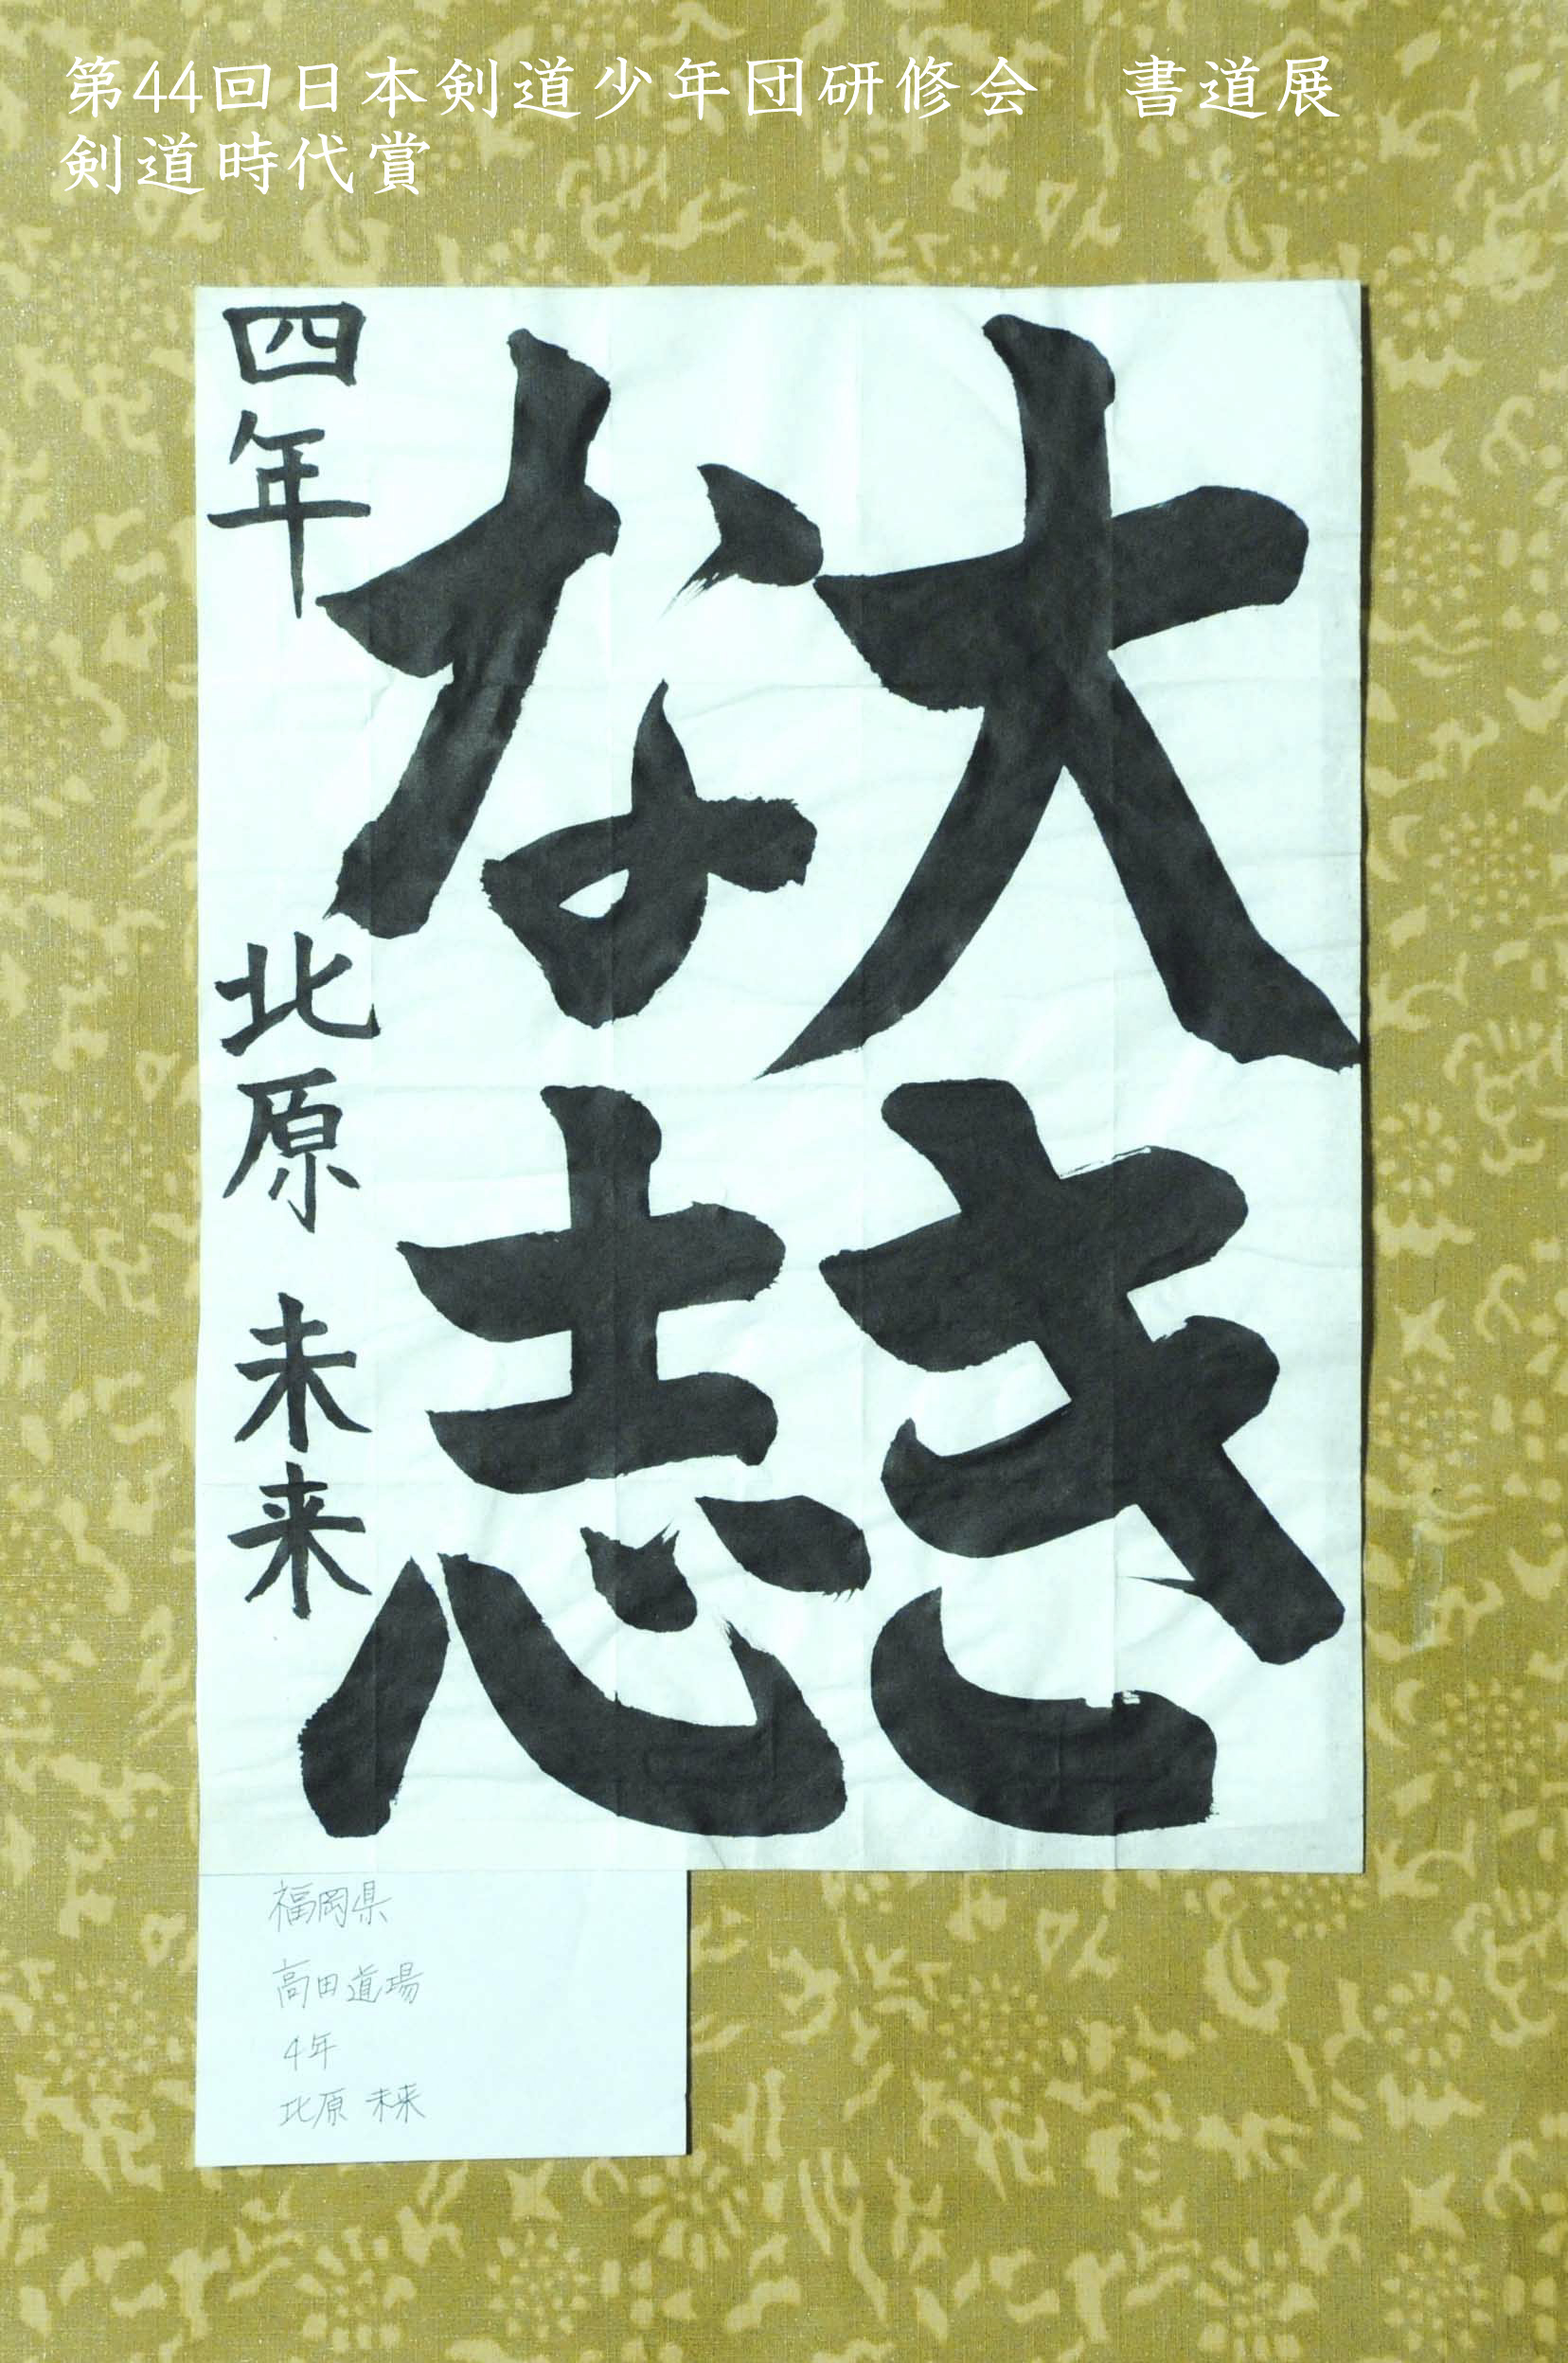 第44回日本剣道少年団研修会　書道展
剣道時代賞
大き
な志
四年 北原 未来
福岡県
高田道場
4年
北原 未来